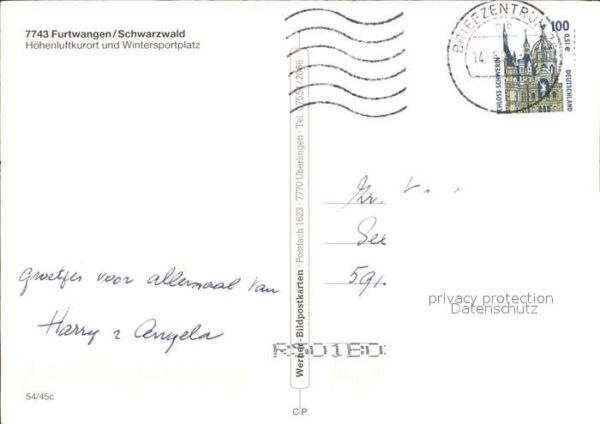 7743 Furtwangen/Schwarzwald
Höhenluftkurort und Wintersportplatz
BRIEFZENTRUM
14
100
0,51 €
SCHLOSS SCHWERIN
DEUTSCHLAND
Werner-Bildpostkarten · Postfach 1623 · 7770 Überlingen · Tel.
groetjes voor allemaal van
Harry & Angela
privacy protection
Datenschutz
54/45c
CP